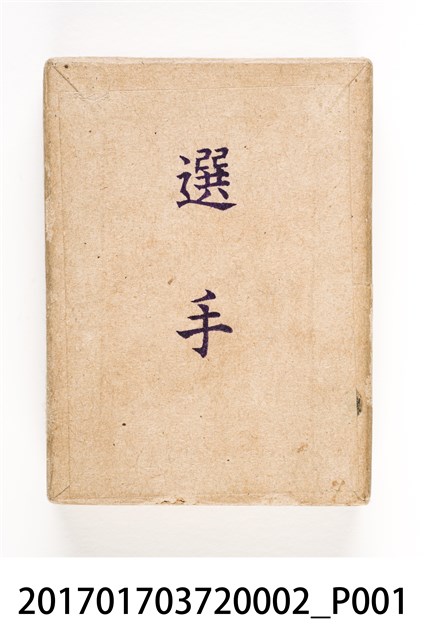 選手
201701703720002_P001